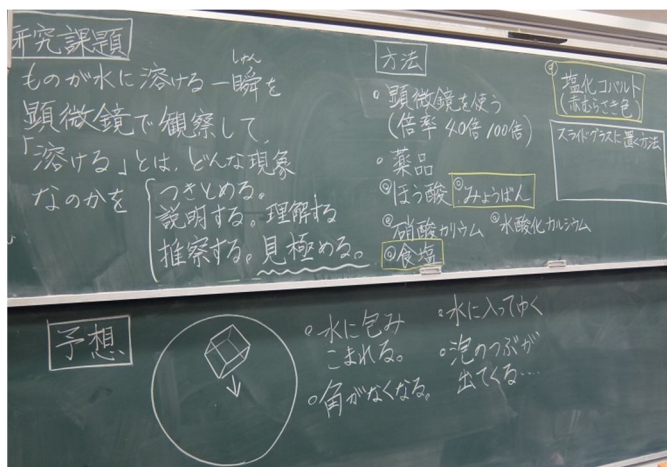 研究課題
しゅん
ものが水に溶ける一瞬を
顕微鏡で観察して、
「溶ける」とは、どんな現象
なのかを
つきとめる。
説明する。理解する
推察する。見極める。
方法
顕微鏡を使う
(倍率 40倍 100倍)
薬品
ほう酸 みょうばん
硝酸カリウム 水酸化カルシウム
食塩
塩化コバルト
(赤むらさき色)
スライドグラスに置く方法
予想
水に包み
こまれる。
角がなくなる。
水に入ってゆく
泡のつぶが
出てくる…